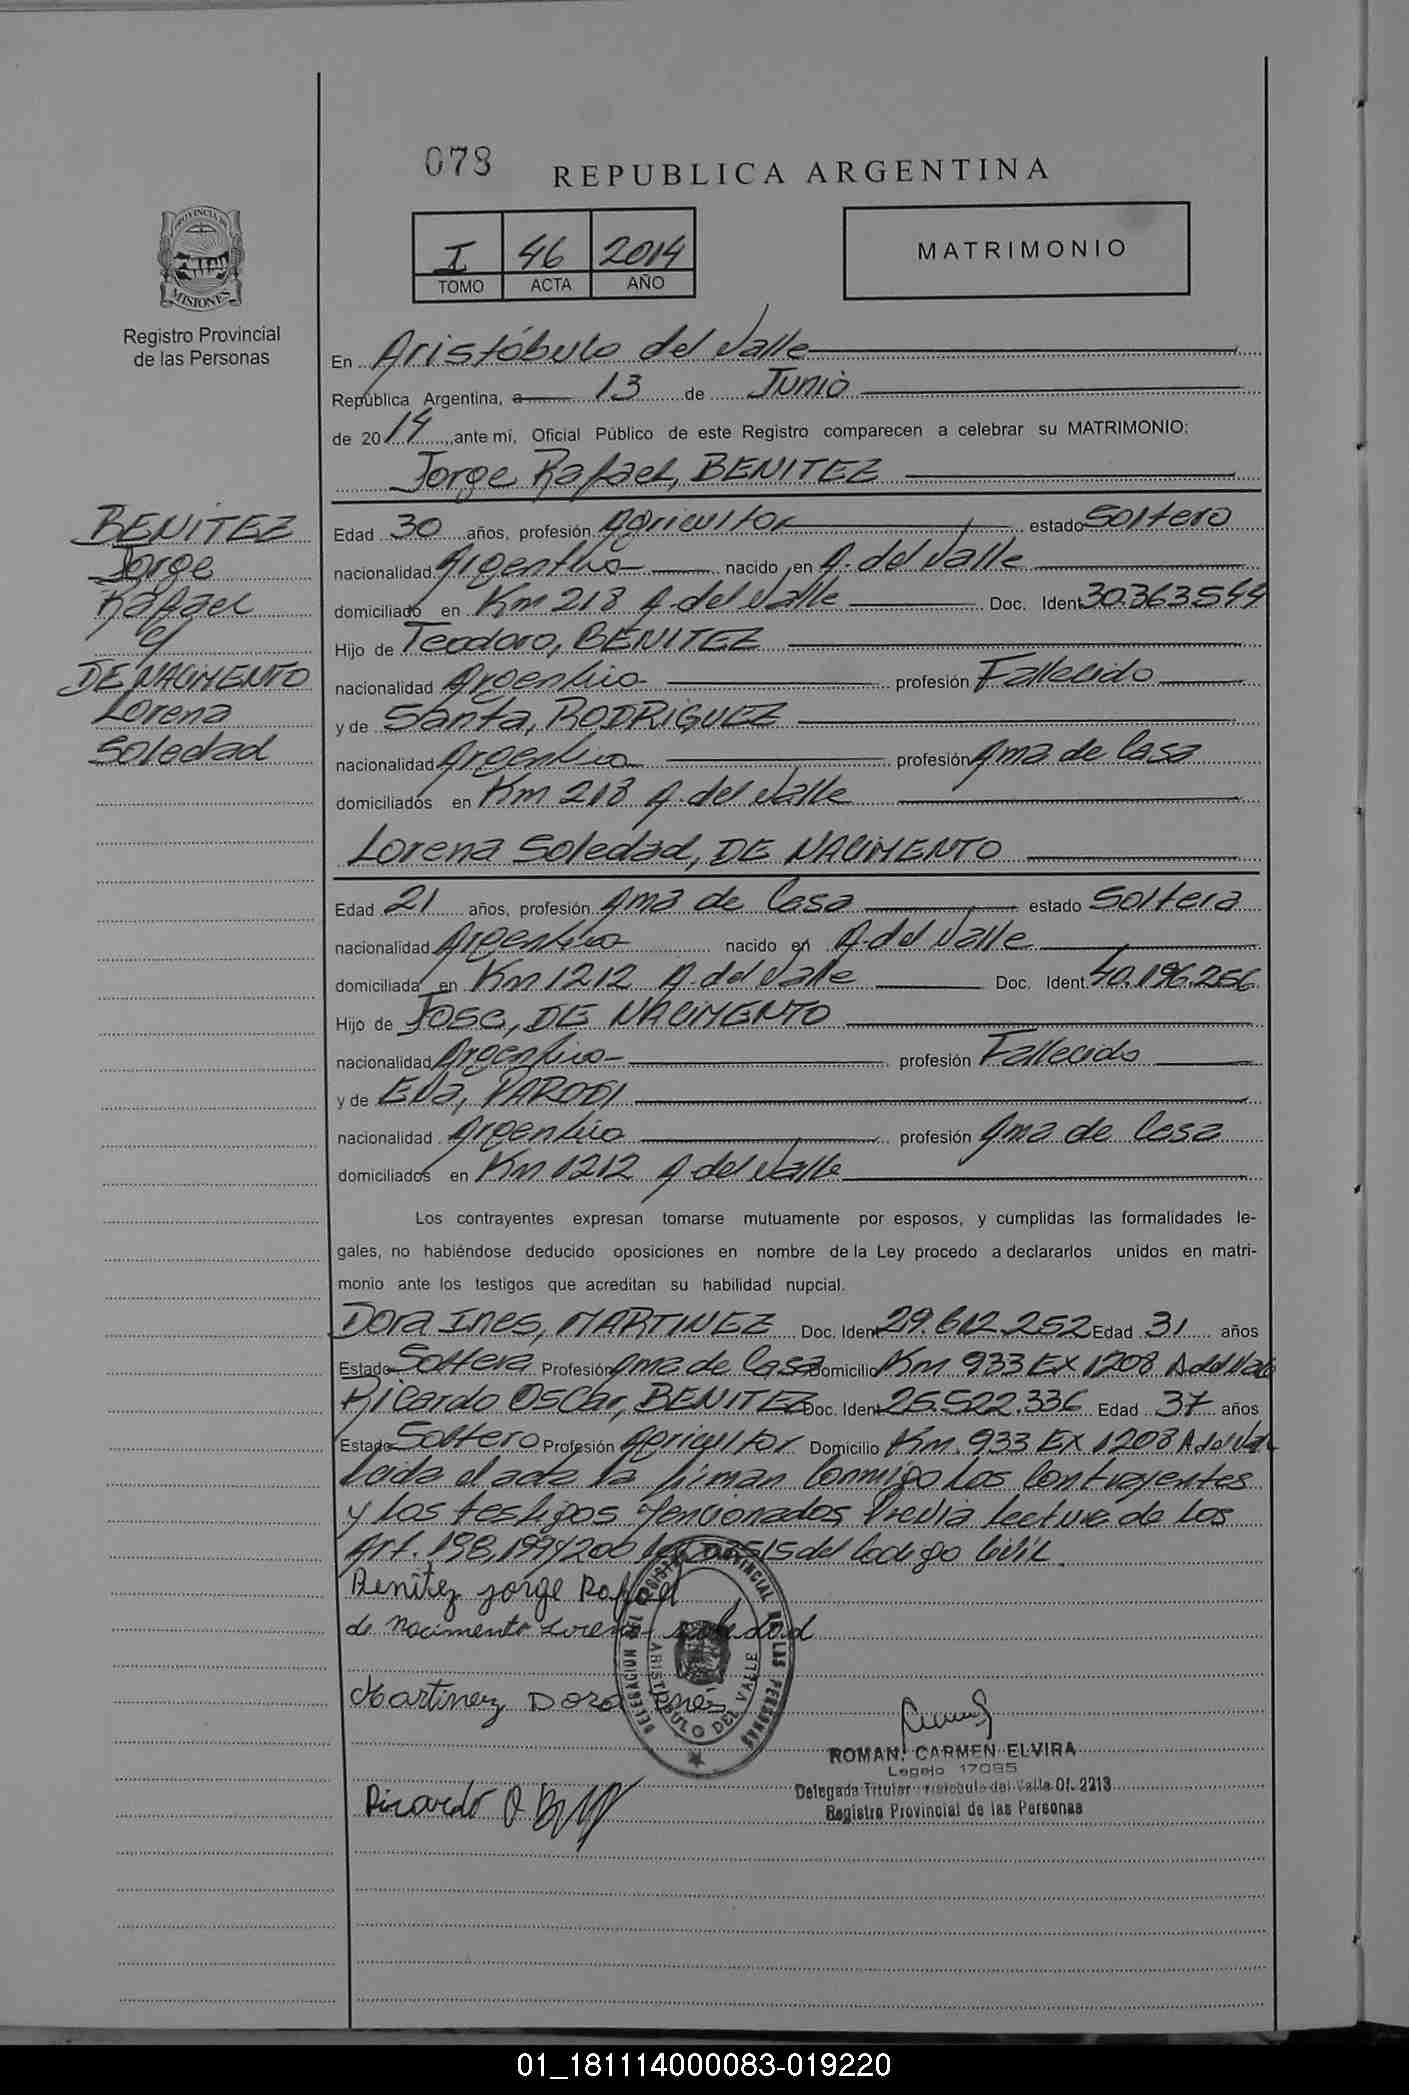 078
REPUBLICA ARGENTINA
PROVINCIA DE
MISIONES
Registro Provincial
de las Personas
I 46 2014
TOMO ACTA AÑO
MATRIMONIO
En Aristóbulo del Valle
República Argentina, a 13 de Junio
de 2014, ante mí, Oficial Público de este Registro comparecen a celebrar su MATRIMONIO:
Jorge Rafael, BENITEZ
BENITEZ
Jorge
Rafael
c/
DE NACIMENTO
Lorena
Soledad
Edad 30 años, profesión Agricultor estado Soltero
nacionalidad Argentino nacido en A. del Valle
domiciliado en Km 218 A. del Valle Doc. Ident. 30.363.544
Hijo de Teodoro, BENITEZ
nacionalidad Argentino profesión Fallecido
y de Santa, RODRIGUEZ
nacionalidad Argentina profesión Ama de Casa
domiciliados en Km 218 A. del Valle
Lorena Soledad, DE NACIMENTO
Edad 21 años, profesión Ama de Casa estado Soltera
nacionalidad Argentina nacido en A. del Valle
domiciliada en Km 1212 A. del Valle Doc. Ident. 40.196.256
Hijo de José, DE NACIMENTO
nacionalidad Argentino profesión Fallecido
y de Eva, PARODI
nacionalidad Argentina profesión Ama de Casa
domiciliados en Km 1212 A. del Valle
Los contrayentes expresan tomarse mutuamente por esposos, y cumplidas las formalidades le-
gales, no habiéndose deducido oposiciones en nombre de la Ley procedo a declararlos unidos en matri-
monio ante los testigos que acreditan su habilidad nupcial.
Dora Ines, MARTINEZ Doc. Ident. 29.612.252 Edad 31 años
Estado Soltera Profesión Ama de Casa Domicilio Km 933 EX 1208 A del Valle
Ricardo Oscar, BENITEZ Doc. Ident. 25.522.336 Edad 37 años
Estado Soltero Profesión Agricultor Domicilio Km. 933 EX 1208 A del Valle
Leida el acta la firman Conmigo Los Contrayentes
y Los testigos Mencionados Previa Lectura de Los
Art. 198, 199 y 200 del Codigo Civil.
Benitez Jorge Rafael
de Nacimento Lorena Soledad
DELEGACION REGISTRO PROVINCIAL DE LAS PERSONAS
ARISTOBULO DEL VALLE
Martinez Dora Ines
ROMAN, CARMEN ELVIRA
Legajo 17095
Delegada Titular Aristobulo del Valle Of. 2213
Registro Provincial de las Personas
Ricardo O
01_181114000083-019220